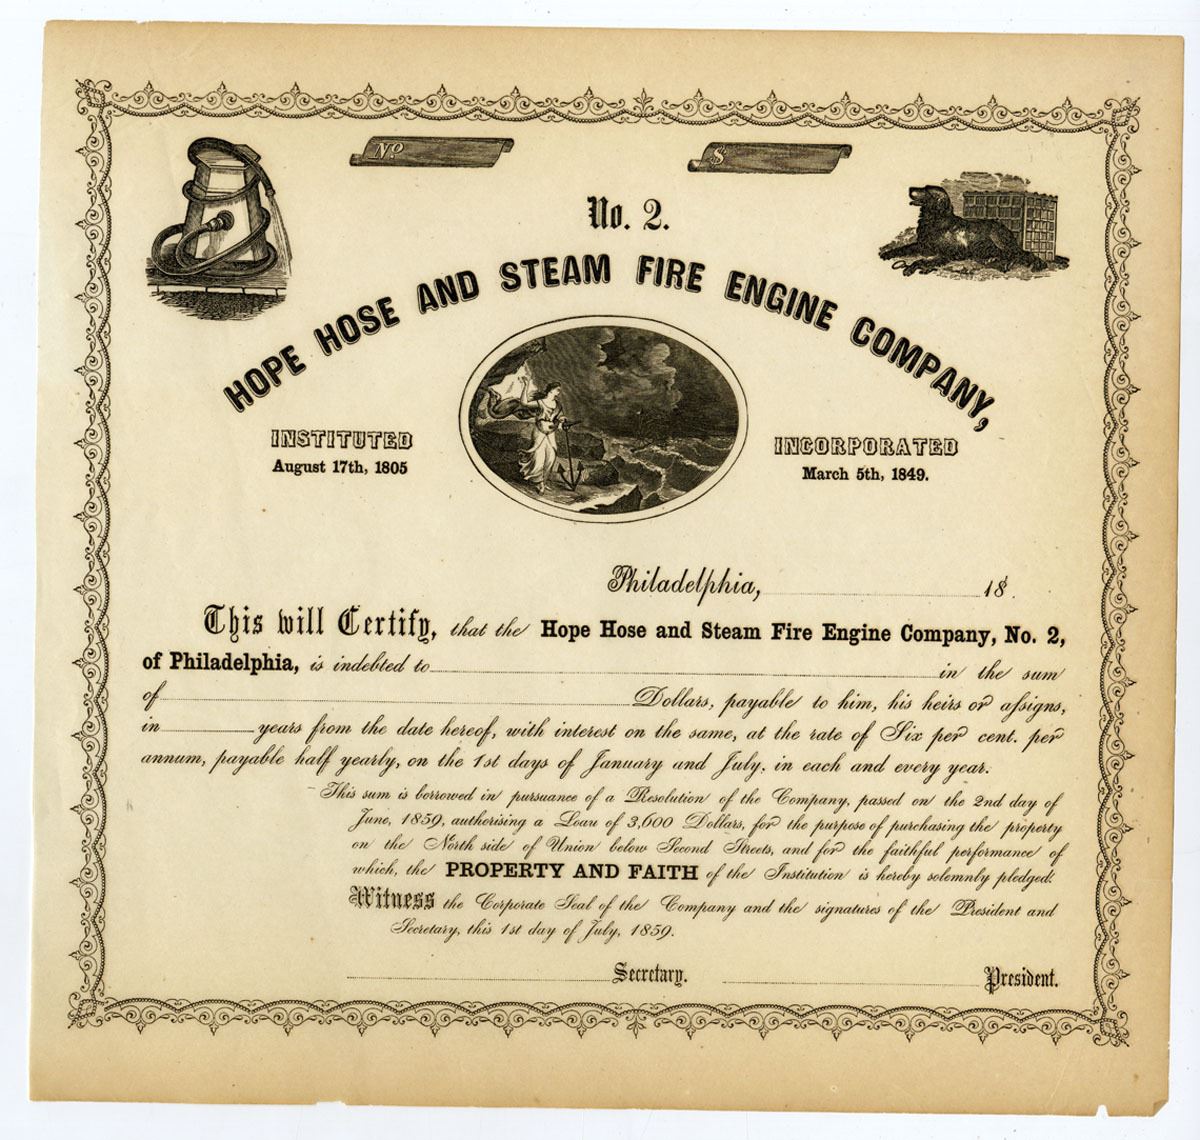 Nº
$
No. 2.
HOPE HOSE AND STEAM FIRE ENGINE COMPANY,
INSTITUTED
August 17th, 1805
INCORPORATED
March 5th, 1849.
Philadelphia, 18 .
This will Certify, that the Hope Hose and Steam Fire Engine Company, No. 2,
of Philadelphia, is indebted to in the sum
of Dollars, payable to him, his heirs or aſsigns,
in years from the date hereof, with interest on the same, at the rate of Six per cent. per
annum, payable half yearly, on the 1st days of January and July, in each and every year.
This sum is borrowed in pursuance of a Resolution of the Company, passed on the 2nd day of
June, 1859, authorising a Loan of 3,600 Dollars, for the purpose of purchasing the property
on the North side of Union below Second Streets, and for the faithful performance of
which, the PROPERTY AND FAITH of the Institution is hereby solemnly pledged.
Witness the Corporate Seal of the Company and the signatures of the President and
Secretary, this 1st day of July, 1859.
Secretary. President.